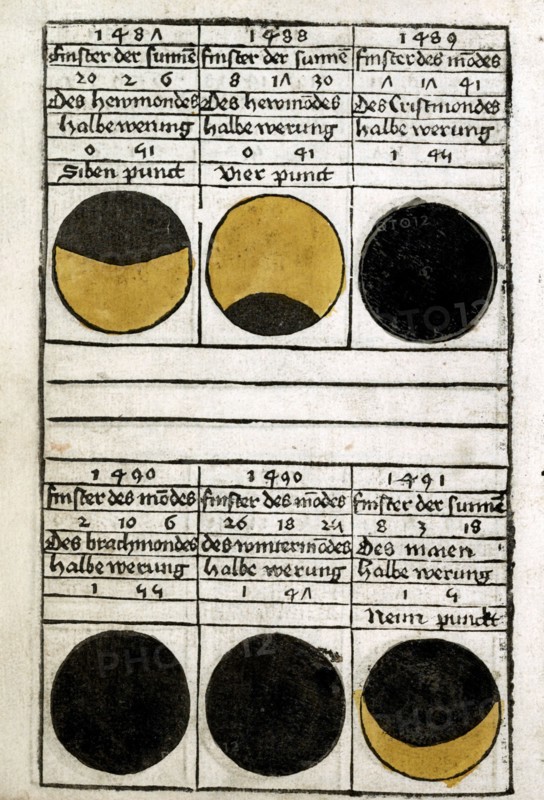 1487
Finster der sunnē
20 2 6
Des hewmondes
Halbe werung
0 51
Siben punct
1488
Finster der sunnē
8 17 30
Des hewmōdes
halbe werung
0 41
Vier punct
1489
Finster des mōdes
7 17 41
Des Cristmondes
halbe werung
1
1490
Finster des mōdes
2 10 6
Des brachmondes
Halbe werung
1 55
1490
Finster des mōdes
26 18 25
des wintermōdes
Halbe werung
1 47
1491
Finster der sunnē
8 3 18
Des maien
Halbe werung
1 5
Neun punckt